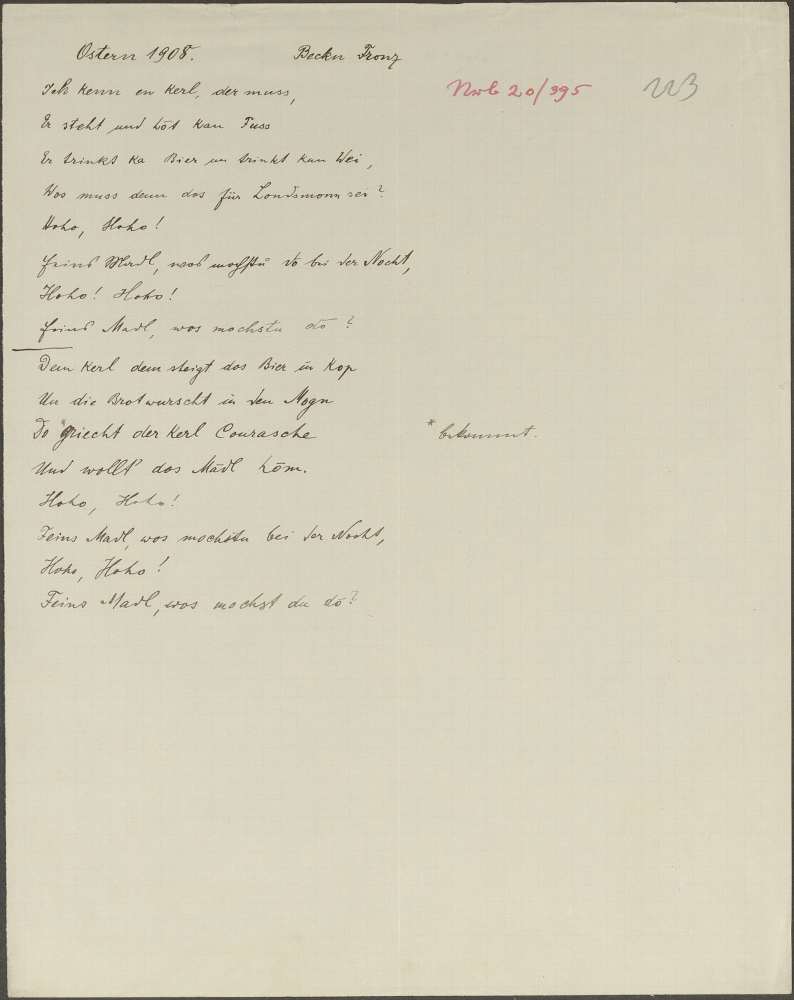 Ostern 1908. Beckn Fronz
Nwb 20/395
Ich kenn en Kerl, der muss,
Er steht und höt kan Fuss
Er trinkt ka Bier un trinkt kan Wei,
Wos muss denn dos für Londsmonn sei?
Hoho, Hoho!
Feins Madl, wos mochstu do bei der Nocht,
Hoho! Hoho!
Feins Madl, wos mochstu dō?
Dem Kerl dem steigt dos Bier in Kop
Un die Brotwurscht in den Mogn
Do *griecht der Kerl Courasche
* bekommt.
Und wollt dos Mädl hōm.
Hoho, Hoho!
Feins Madl, wos mochstu bei der Nocht,
Hoho, Hoho!
Feins Madl, wos mochst du dō?